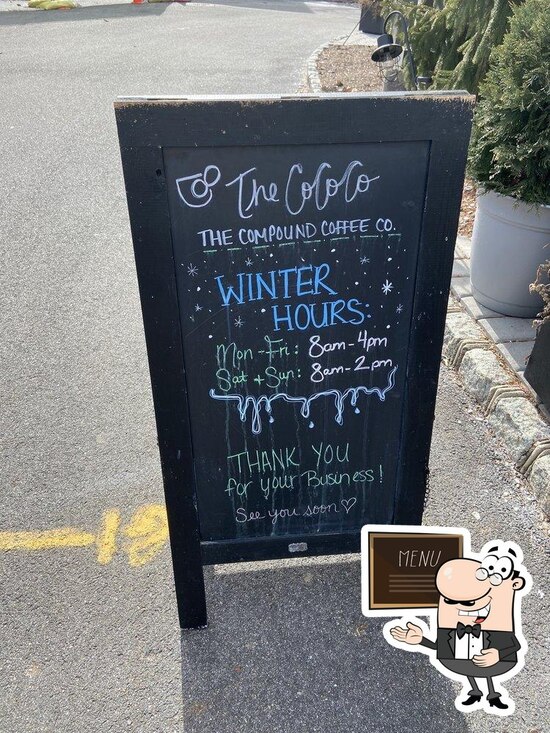 The CoCoCo
THE COMPOUND COFFEE CO.
WINTER
HOURS:
Mon-Fri: 8am-4pm
Sat + Sun: 8am-2pm
THANK YOU
for your Business!
See you soon ♡
18
MENU